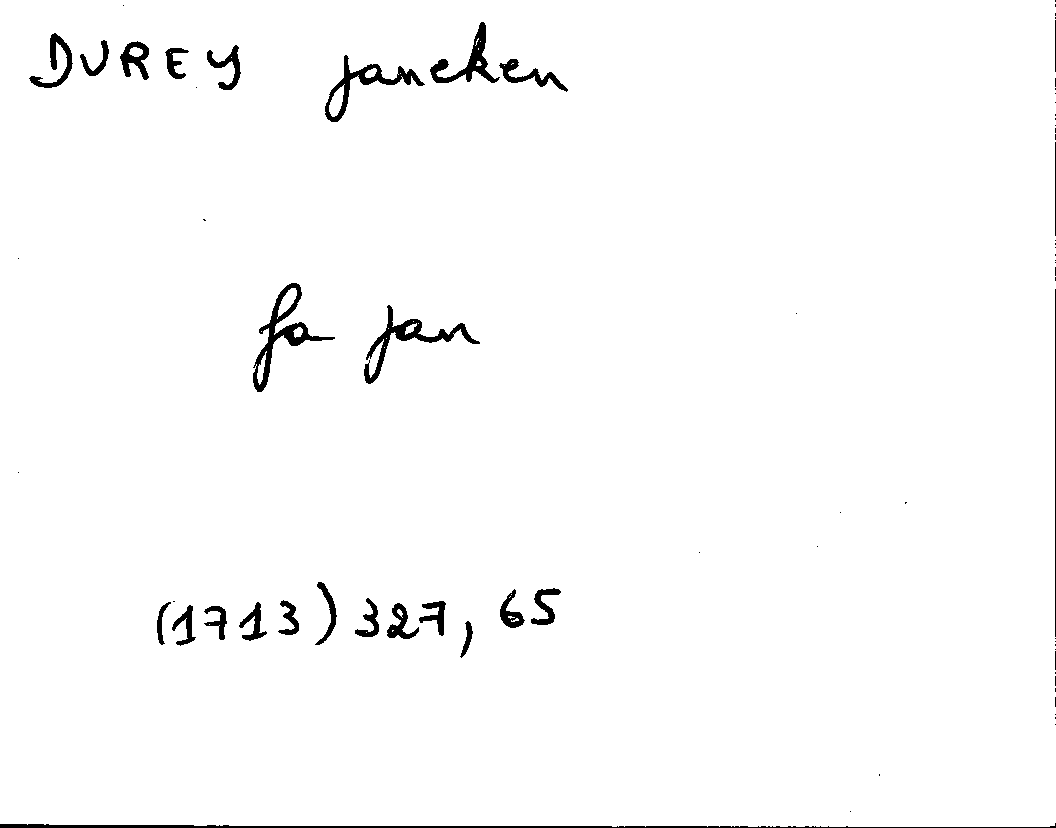 DUREY janeken
fa jan
(1713) 327, 65